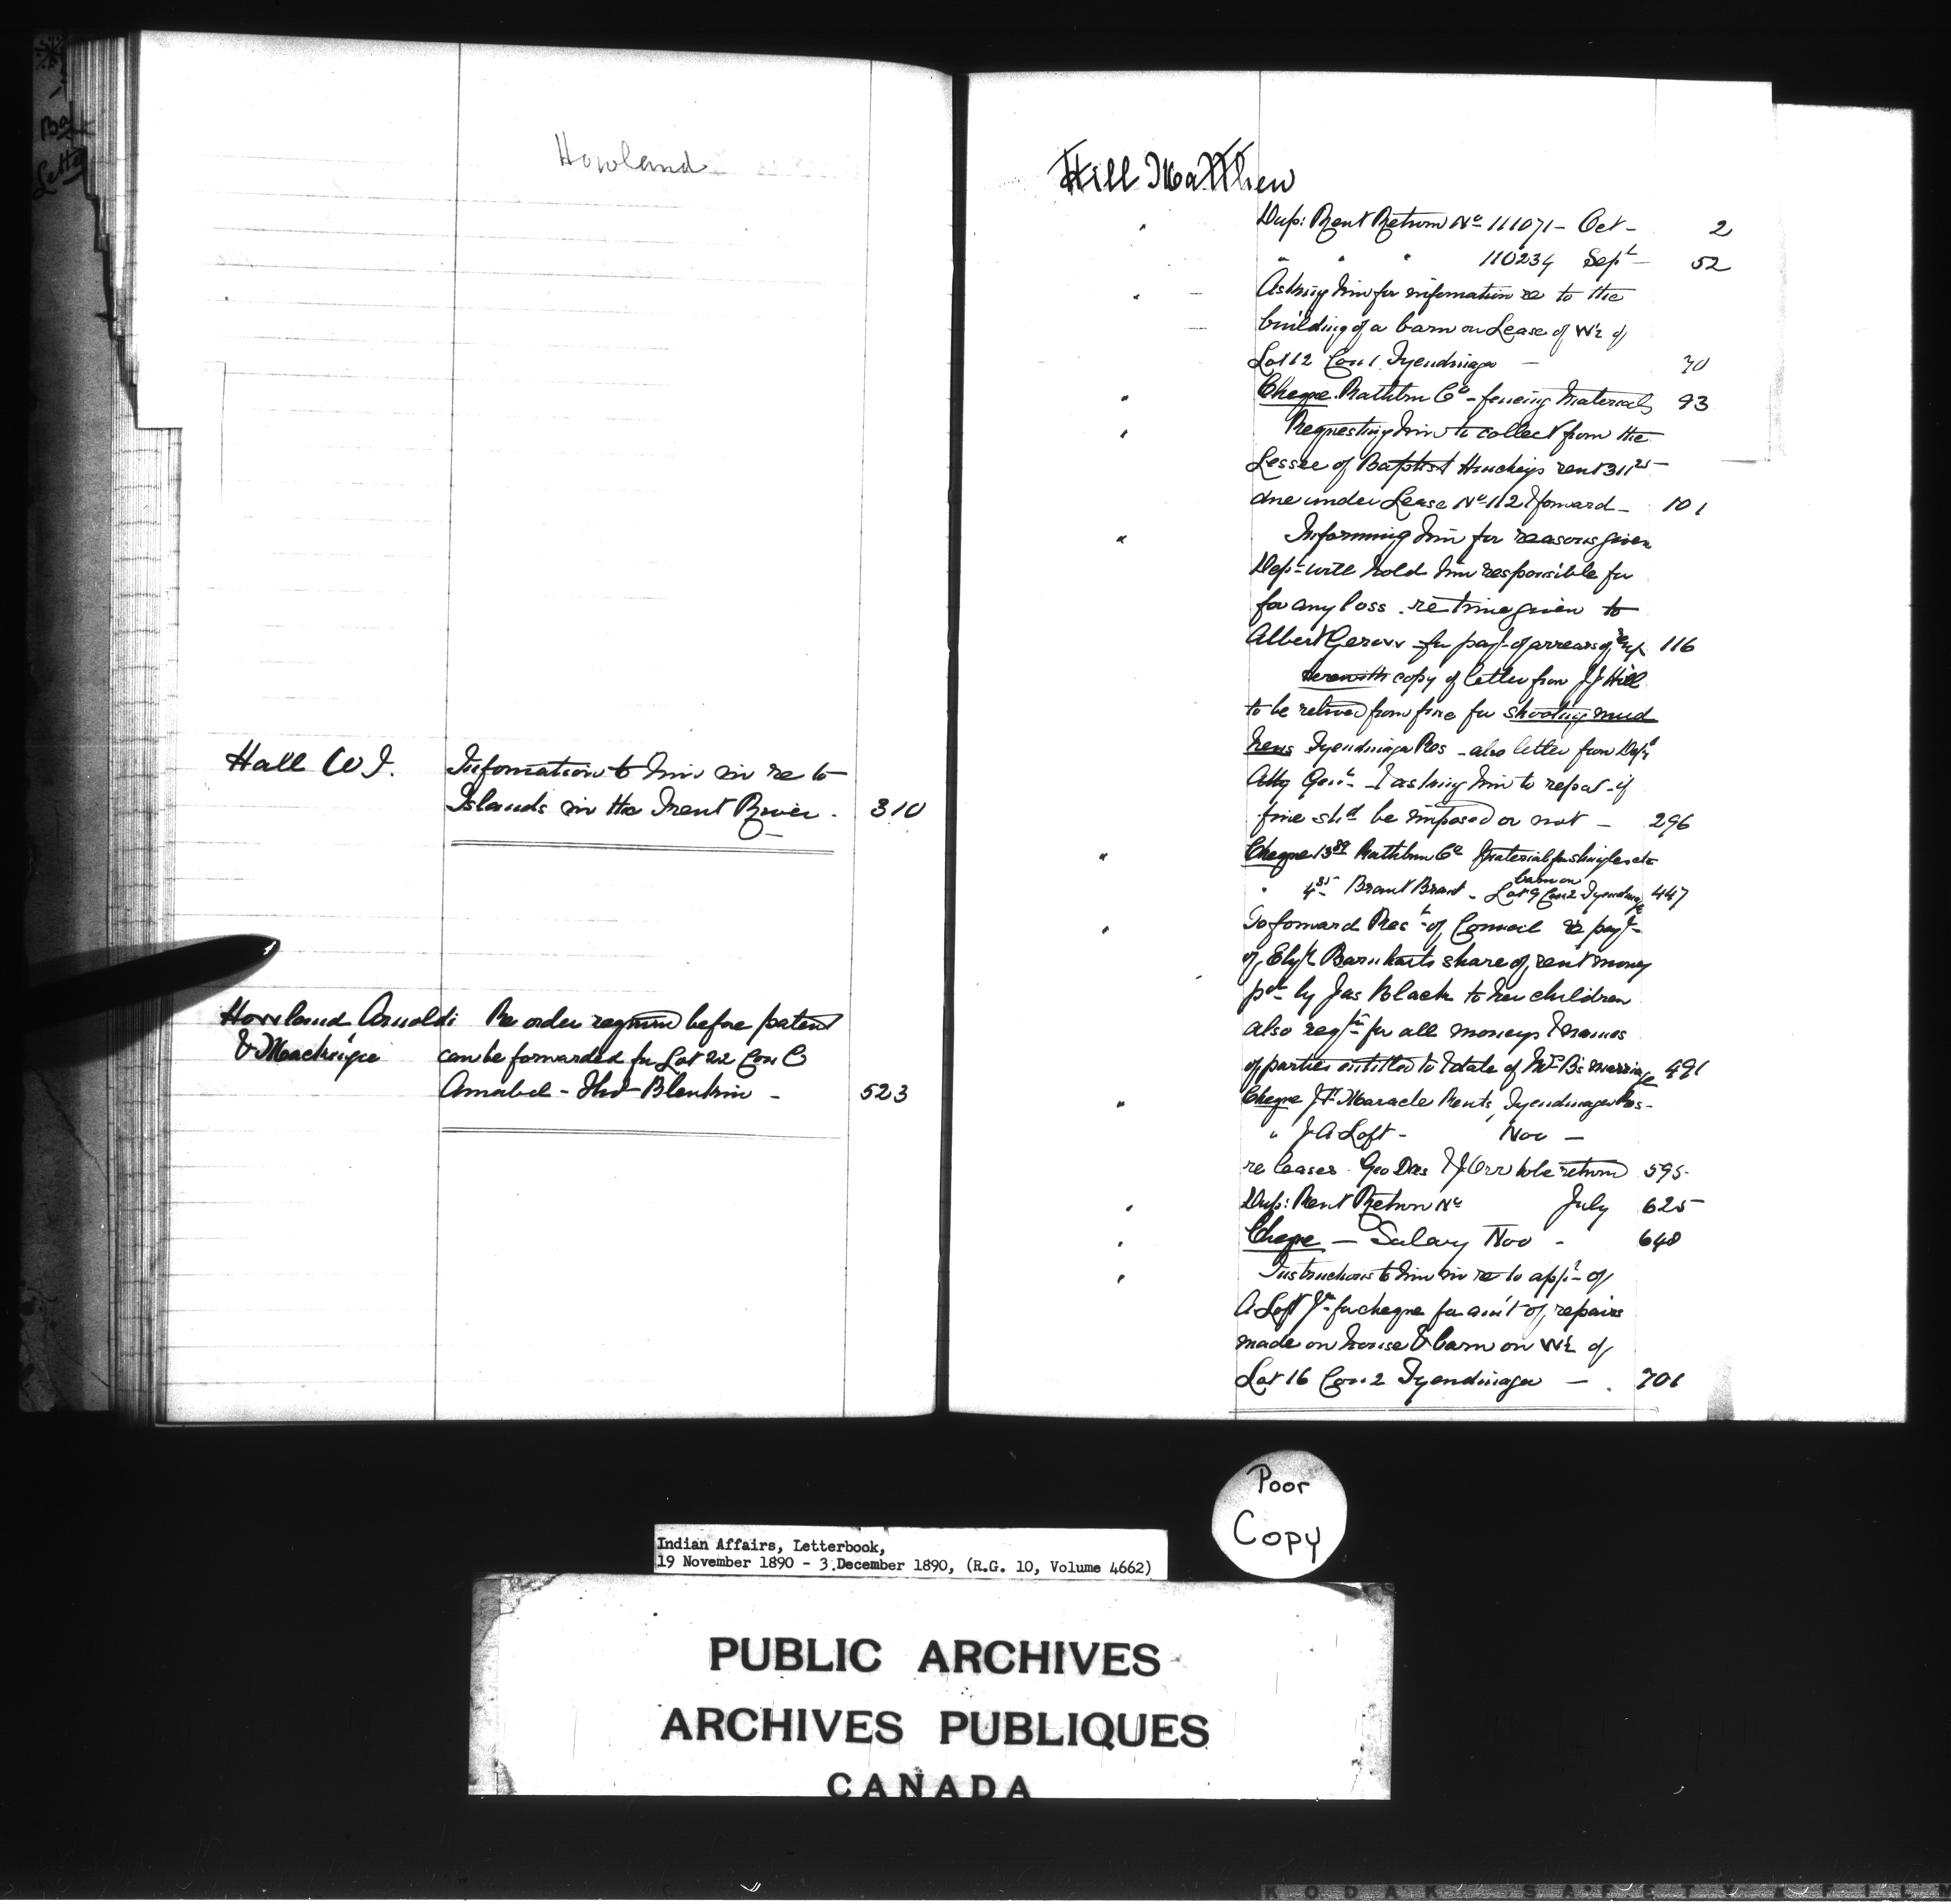 Howland
Hall W. J.
Information to him in re to
Islands in the Trent River - 310
Howland Arnoldi
& Mackenzie
Re order required before patent
can be forwarded for Lot 22 Con C
Amabel - Thos Blenkin - 523
Hill Matthew
" Dup: Rent Return No 111071 - Oct - 2
" " " 110234 Sept - 52
" Asking him for information re to the
building of a barn on Lease of W½ of
Lot 12 Con 1 Tyendinaga - 70
" Cheque Rathbun Co - fencing Materials 93
" Requesting him to collect from the
Lessee of Baptist rent 311 25 -
due under Lease No 112 & forward - 101
" Informing him for reasons given
Dept will hold him responsible for
for any loss . re time given to
Albert Gerow for payt of arrears of rent 116
Herewith copy of letter from J J Hill
to be relieved from fine for shooting mud
hens Tyendinaga Res - also letter from Depy
Atty Genl - & asking him to report if
fine shd be imposed or not - 296
" Cheque 13 89 Rathbun Co Material for shingles etc
" 4 85 Brant Brant - barn on Lot 9 Con 2 Tyendinaga 447
" To forward Resn of Council re payt
of Elizh Barnharts share of rent money
pd by Jas Black to her children
also regn for all moneys & names
of parties entitled to & date of Mrs B's marriage 491
" Cheque J H Maracle Rents, Tyendinaga Res -
" J A Loft - Nov -
re leases Geo & J Orr to be return 595
" Dup: Rent Return No July 625
" Cheque - Salary Nov - 648
" Instructions to him in re to appn of
A Loft Jr for cheque for am't of repairs
made on house & barn on W½ of
Lot 16 Con 2 Tyendinaga - 701
Poor
Copy
Indian Affairs, Letterbook,
19 November 1890 - 3 December 1890, (R.G. 10, Volume 4662)
PUBLIC ARCHIVES
ARCHIVES PUBLIQUES
CANADA
KODAK SAFETY FILM